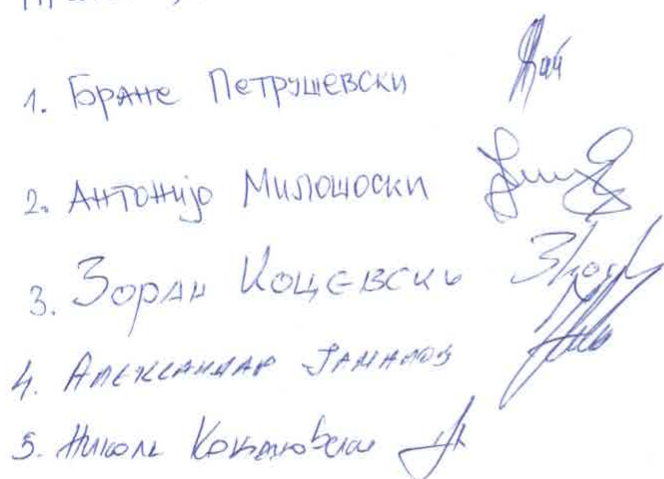 1. Бране Петрушевски
2. Антонијо Милошоски
3. Зоран Коцевски
4. Александар
5. Никола